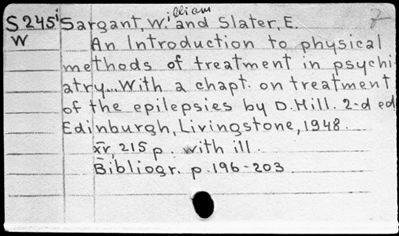 S245i Sargant, W.illiam and Slater, E.
W An Introduction to physical
methods of treatment in psychi
atry... With a chapt. on treatment
of the epilepsies by D. Hill. 2-d ed
Edinburgh, Livingstone, 1948.
XV, 215 p. with ill.
Bibliogr. p. 196-203